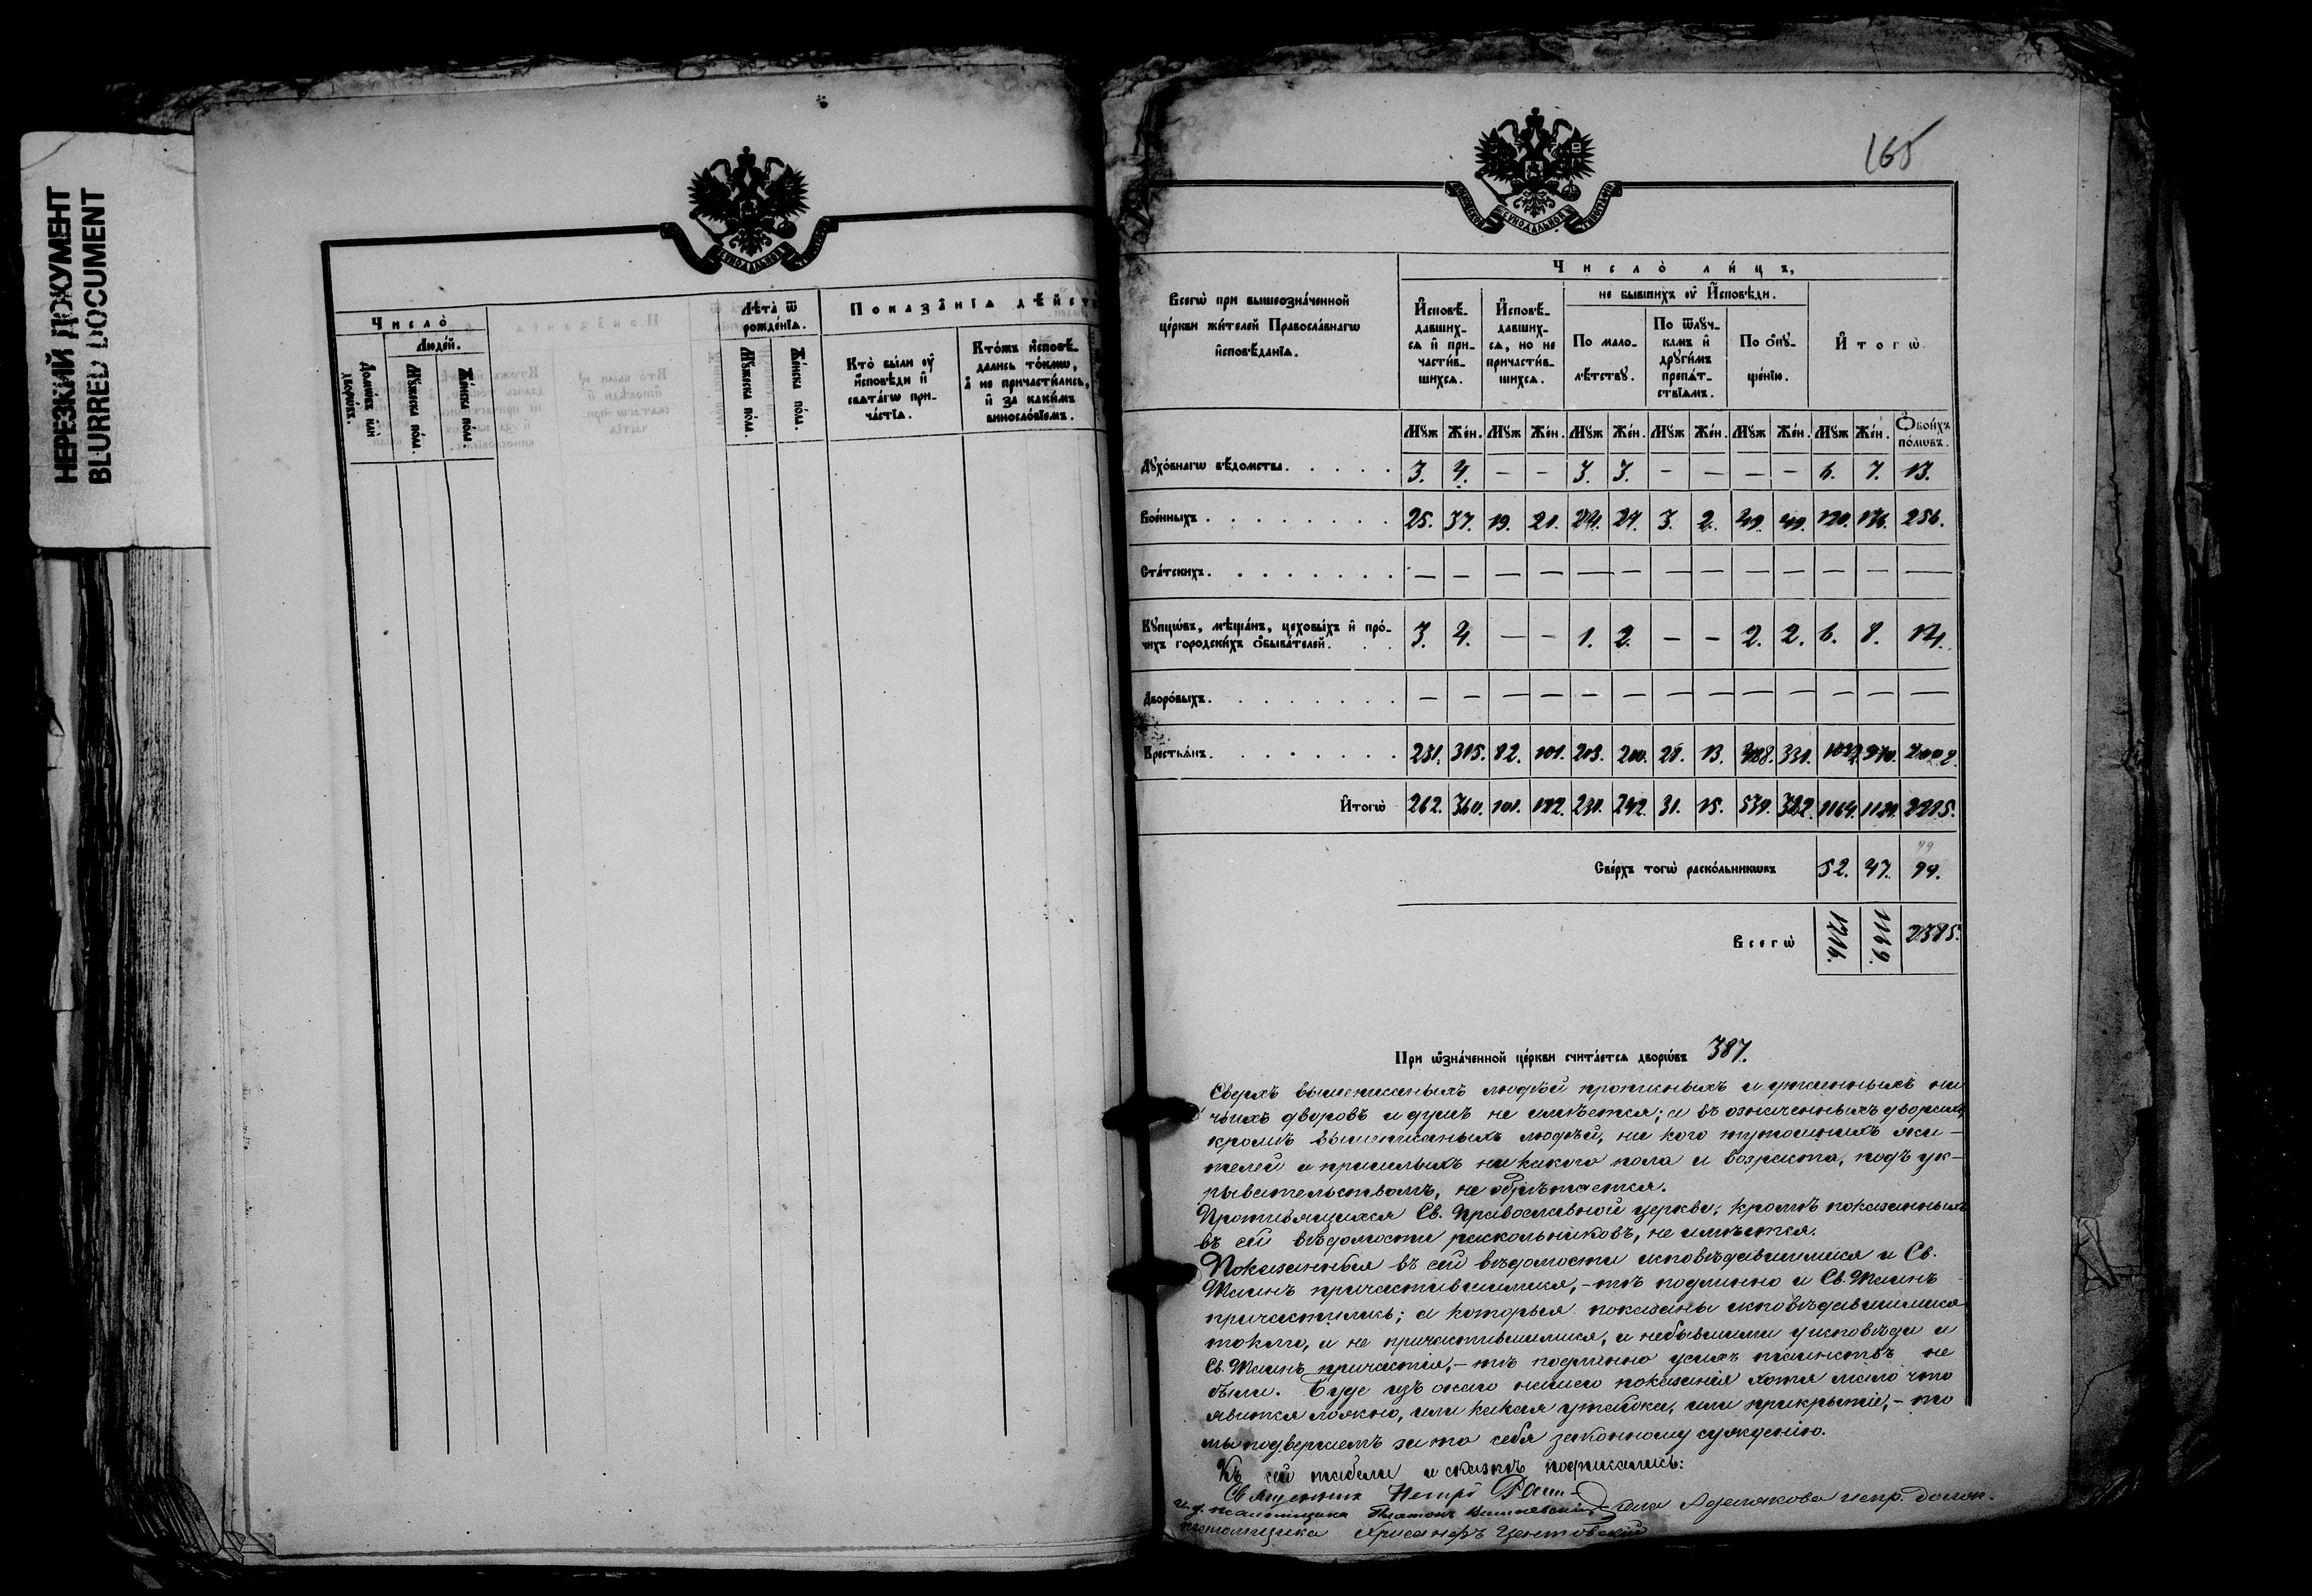 НЕРЕЗКИЙ ДОКУМЕНТ
BLURRED DOCUMENT
СУНОДАЛЬНОЙ
Число̀
Людѐй.
Домѡ́въ и҆лѝ дворѡ́въ.
Мꙋ́жеска по́лꙋ.
Же́нска по́лꙋ.
Лѣ́та ѿ рожде́нїѧ.
Мꙋ́жеска по́лꙋ.
Же́нска по́лꙋ.
Показа̑нїѧ дѣ́йст
Кто̀ бы́ли ᲂу҆ и҆сповѣди и҆ свѧта́гѡ причастїѧ.
Кто́жъ и҆сповѣ́дались то́кмѡ, а҆ не причасти́лись, и҆ за каки́мъ винослѡ́вїемъ.
165
СУНОДАЛЬНОЙ ТИПОГРАФІИ
Всегѡ̀ при вышеозна́ченной це́ркви жи́телей Правосла́внагѡ и҆сповѣ́данїѧ.
Число̀ ли́цъ,
И҆сповѣ́давшихсѧ и҆ причасти́вшихсѧ.
И҆сповѣ́давшихсѧ, но не причасти́вшихсѧ.
не бывшихъ ᲂу҆ И҆сповѣди.
По мало-лѣ́тствꙋ.
По ѿлꙋ́чкамъ и҆ дрꙋги́мъ препѧ́тствїѧмъ.
По ѻ҆пꙋще́нїю.
И҆тогѡ̀.
Мꙋж Жен. Мꙋж Жен. Мꙋж Жен. Мꙋж Жен. Мꙋж Жен. Мꙋж Жен. Ѻ҆бои́хъ по́лѡвъ.
Дꙋхо́внагѡ вѣ́домства. 3. 4. — — 3. 3. — — — — 6. 7. 13.
Вое́нныхъ. 25. 37. 19. 21. 3. 2. 256.
Ста́тскихъ. — — — — — — — — — — — — —
Кꙋпцѡ́въ, мѣща́нъ, цеховы́хъ и҆ про́чихъ городски́хъ ѻ҆быва́телей. 3. 4. — — 1. 2. — — 2. 2. 6. 8. 14.
Дворо́выхъ. — — — — — — — — — — — — —
Крестьѧ́нъ. 231. 315. 82. 101. 203. 28. 13. 331.
И҆тогѡ̀ 262. 360. 101. 122. 231. 242. 31. 15. 539. 382. 1164. 1121. 2285.
Све́рхъ тогѡ̀ раско́льникѡвъ 52. 47. 99.
99
Всегѡ̀ 1216. 1169. 2385.
При ѡ҆зна́ченной це́ркви счита́етсѧ дворѡ́въ 387.
Сверхъ вышеписаныхъ людѣй прописныхъ и утаенныхъ ни
чьихъ дворовъ и душъ не имѣется; а въ означенныхъ дворахъ,
кромѣ вышеписаныхъ людѣй, ни кого тутошнихъ жи-
телей и пришлыхъ ни какого пола и возраста, подъ ук-
рывательствомъ, не обрѣтается.
Противящихся Св. Православной церкви, кромѣ показанныхъ
въ сей вѣдомости раскольниковъ, не имѣется.
Показанныя въ сей вѣдомости исповѣдавшимися и Св.
Таинъ причастившимися,- тѣ подлинно и Св. Таинъ
причастились; а которыя показаны исповѣдавшимися
токмо, а не причастившимися, и небывшими у исповѣди и
Св. Таинъ причастія,- тѣ подлинно у сихъ таинствъ не
были. Буде изъ онаго нашего показанія хотя мало что
явится ложно, или какая утайка, или прикрытіе,- то
мы подвергаемъ за то себя законному сужденію.
Къ сей табели и сказкѣ подписались:
Священникъ Петръ
и. д. псаломщика Платонъ испр. долж.
псаломщика Хрисанфъ